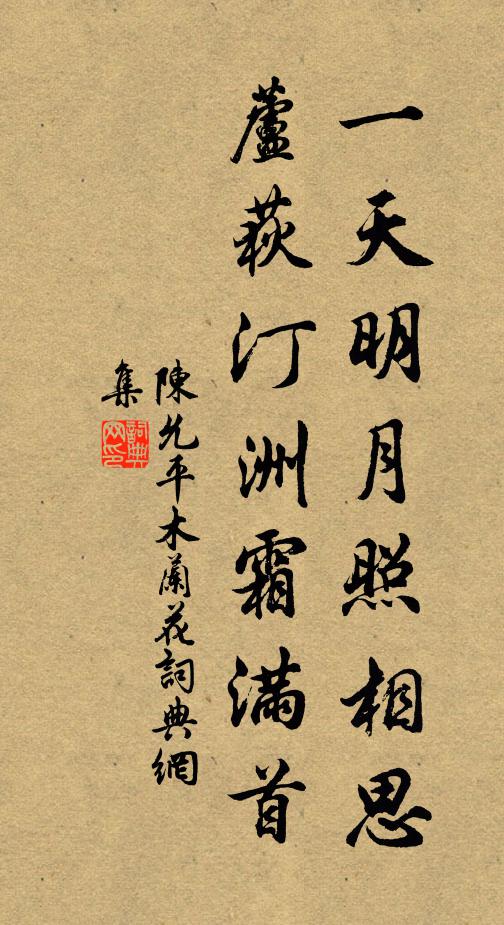 一天明月照相思
蘆荻汀洲霜滿首
陳允平木蘭花詞典網
集
詞典網印